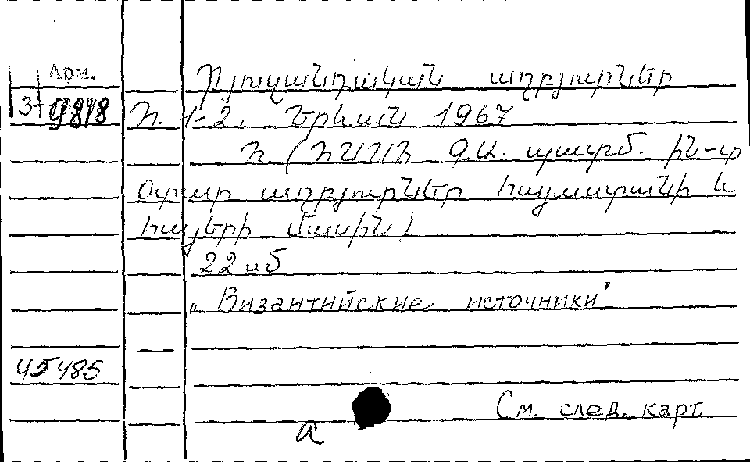 Арм.
Բյուզանդական աղբյուրներ
3- 9818
Հ. 1-2. Երևան 1967
Հ (ՀՍՍՀ ԳԱ. պատմ. ին-տ
Օտար աղբյուրները Հայաստանի և
հայերի մասին)
22 սմ
„Византийские источники"
45485
См. след. карт.
а